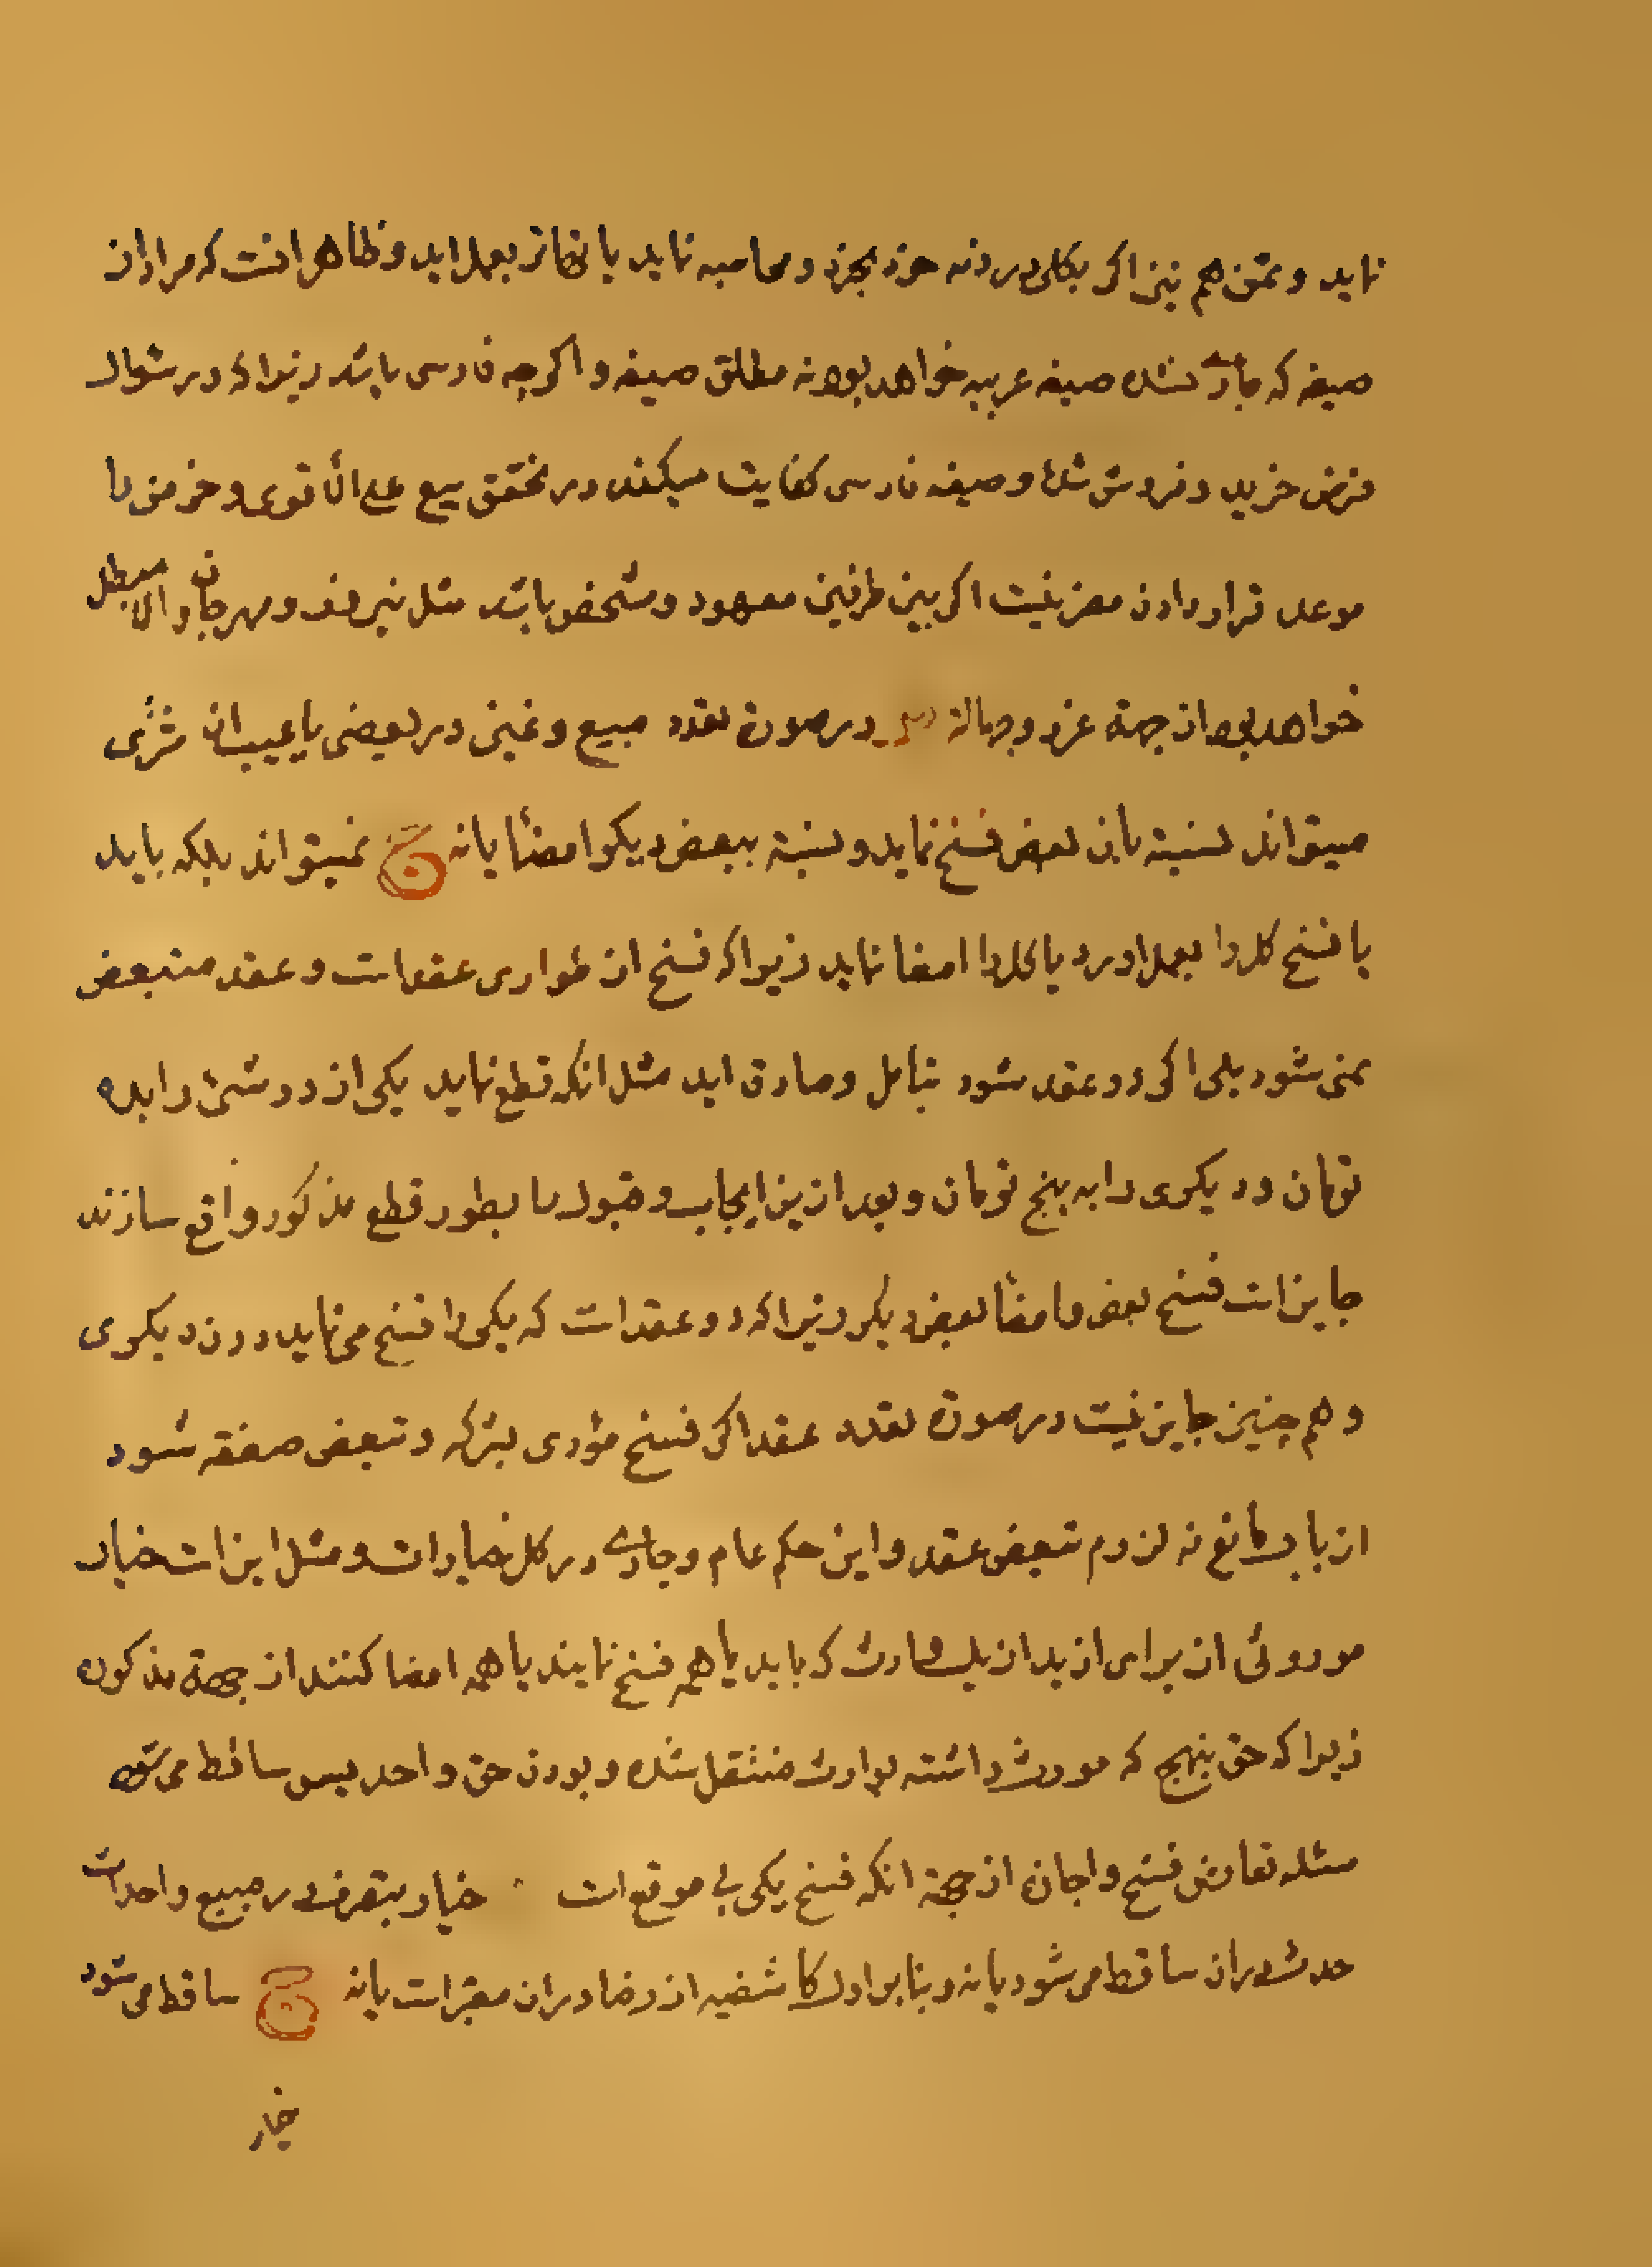 نماید و ثمن هم نیز اکر بکلی در ذمه خود بخرد و محاسبه نماید یا نحا تر بعمل اید و ظاهر انست که مراد از
صیغه که جاری نشده صیغه عربیه خواهد بود نه مطلق صیغه و اکر چه فارسی باشد زیرا که در سئوال
فرض خرید و فروش شده و صیغه فارسی کفایت میکند در تحقق بیع علی الاقوی و خرمن را
موعد قرار دادن مضر نیست اکر بین طرفین معهود و مشخص باشد مثل نیروز و مهرجان و الا مبطل
خواهد بود از جهة غرر و جهالة س در صورة تعدد مبیع و غبنی در بعضی یا عیب ان مشتری
میتواند نسبة بان بعض فسخ نماید و نسبة ببعض دیکر امضأ یا نه ج نمیتواند بلکه باید
یا فسخ کل را بعمل اورد یا کل را امضا نماید زیرا که فسخ از طواری عقد است و عقد متبعض
نمی شود بلی اکر دو عقد شود بتامل و صادق اید مثل انکه قطع نماید یکی از دو شئ را بده
تومان و دیکری را به پنج تومان و بعد از ین ایجاب و قبول با بطور قطع مذکور واقع سازند
جایز است فسخ بعض و امضأ بعض دیکر زیرا که دو عقد است که یکی را فسخ می نماید دون دیکری
و هم چنین جایز نیست در صورة تعدد عقد اکر فسخ مؤدی بشرکه و تبعض صفقه شود
از باب مانع نه لزوم تبعض عقد و این حکم عام و جاری در کل خیارات و مثل این است خیار
موروثی از برای ازید از یک وارث که باید یا همه فسخ نمایند یا همه امضا کنند از جهة مذکوره
زیرا که حق بنهج که مورث داشته بوارث منتقل شده و بودن حق واحد پس ساقط می شود
مسئله تعارض فسخ و اجازه از جهة انکه فسخ یکی بی موقع است خیار بتصرف در مبیع و احداث
حدث در ان ساقط می شود یا نه و بنابر اول کاشفیه از رضا در ان معتبر است یا نه ج ساقط می شود
خیار